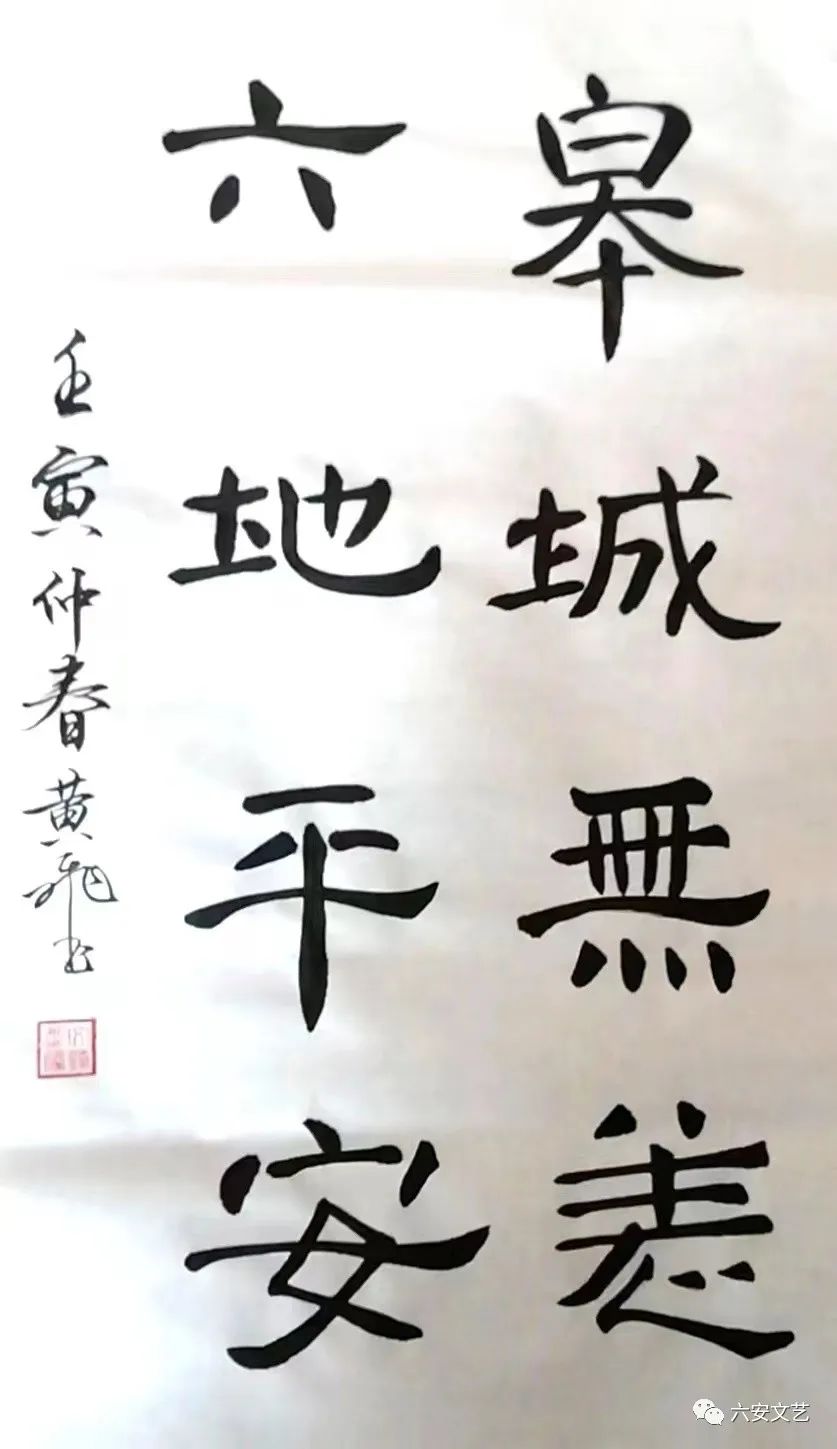 皋城無恙
六地平安
壬寅仲春黄飛书
六安文艺